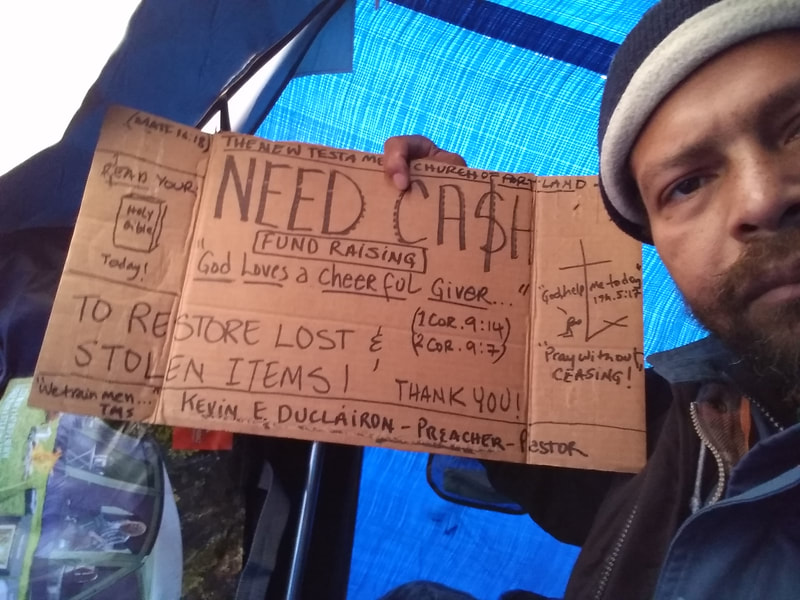 (MATT. 16.18)
THE NEW TESTAMENT CHURCH OF PORTLAND -
READ YOUR
HOLY
Bible
Today!
NEED CA$H
FUND RAISING
"God Loves a Cheerful Giver..."
(1 COR. 9:14)
(2 COR. 9:7)
TO RESTORE LOST &
STOLEN ITEMS!
THANK YOU!
"We train men..."
TMS
KEVIN E. DUCLAIRON - PREACHER - PASTOR
"God, help me today"
1 Th. 5:17
"Pray without
CEASING!"